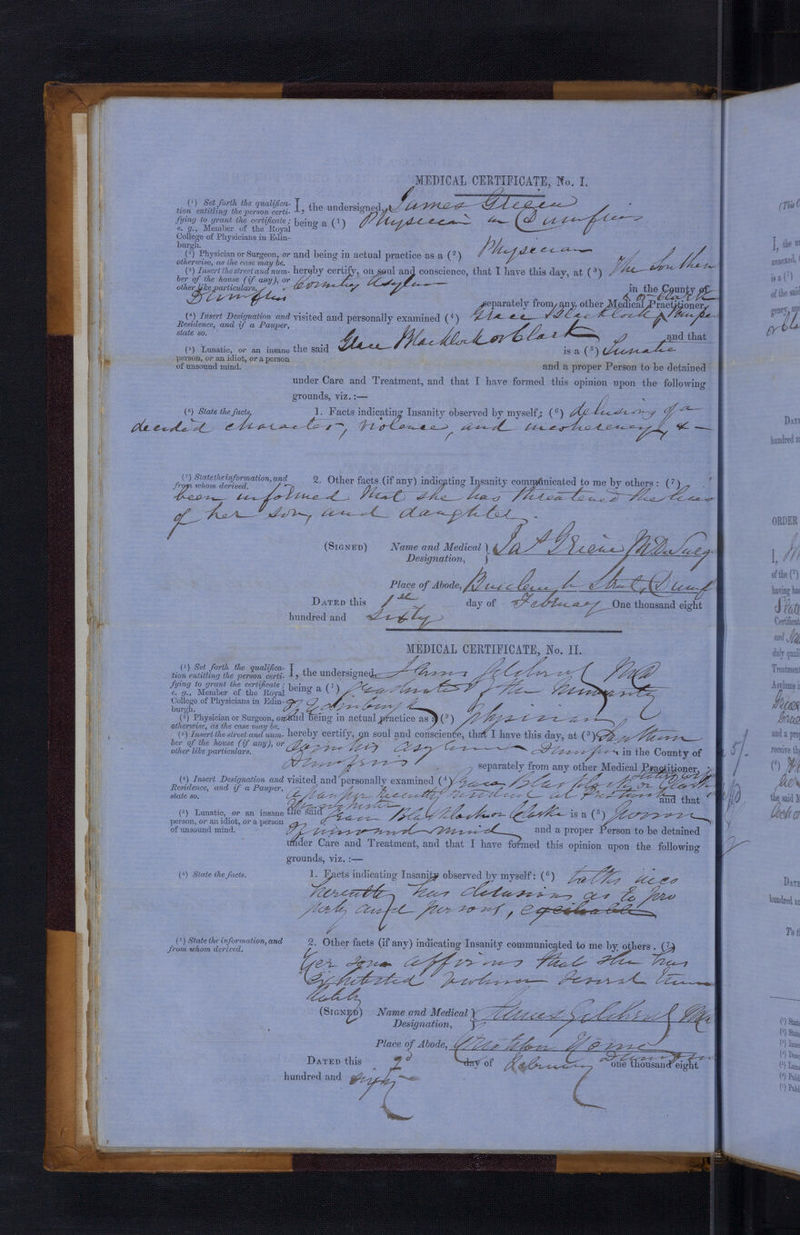 MEDICAL CERTIFICATE, No. I.
(¹) Set forth the qualifica- I, the undersigned, James
tion entitling the person certi-
fying to grant the certificate; being a (¹) Physician in Dumfries
e. g., Member of the Royal
College of Physicians in Edin-
burgh.
(²) Physician or Surgeon, or and being in actual practice as a (²) Physician
otherwise, as the case may be.
(³) Insert the street and num- hereby certify, on soul and conscience, that I have this day, at (³) The Southern
ber of the house (if any), or
other like particulars. Counties Asylum
Dumfries in the County of
separately from any other Medical Practitioner,
(⁴) Insert Designation and visited and personally examined (⁴) Grace Blacklock
Residence, and if a Pauper,
state so.
and that
(⁵) Lunatic, or an insane the said Grace Blacklock or Clark is a (⁵) Lunatic
person, or an idiot, or a person
of unsound mind. and a proper Person to be detained
under Care and Treatment, and that I have formed this opinion upon the following
grounds, viz.:—
(⁶) State the facts, 1. Facts indicating Insanity observed by myself; (⁶) delusions of a
decided character, violence, and incoherency, &
(⁷) State the information, and 2. Other facts (if any) indicating Insanity communicated to me by others: (⁷)
from whom derived.
been informed that she has threatened the lives
of her son, and daughter.
(SIGNED) Name and Medical } Jas
Designation, }
Place of Abode, Buccleuch Street, Dumf
DATED this 1st day of February One thousand eight
hundred and Sixty
MEDICAL CERTIFICATE, No. II.
(¹) Set forth the qualifica- I, the undersigned, James Gilchrist MD
tion entitling the person certi-
fying to grant the certificate; being a (¹) Graduate of the University
e. g., Member of the Royal
College of Physicians in Edin- of Edinburgh
burgh.
(²) Physician or Surgeon, or and being in actual practice as a (²) Physician
otherwise, as the case may be.
(³) Insert the street and num- hereby certify, on soul and conscience, that I have this day, at (³) Southern
ber of the house (if any), or
other like particulars. Counties Asylum Dumfries in the County of
Dumfries separately from any other Medical Practitioner,
(⁴) Insert Designation and visited and personally examined (⁴) Grace Blacklock or Clark
Residence, and if a Pauper,
state so. a Pauper recently resident at
and that
(⁵) Lunatic, or an insane the said Grace Blacklock or Clarke is a (⁵) Person
person, or an idiot, or a person
of unsound mind. Of unsound mind and a proper Person to be detained
under Care and Treatment, and that I have formed this opinion upon the following
grounds, viz.:—
(⁶) State the facts. 1. Facts indicating Insanity observed by myself: (⁶) talks inco
herently has delusions as to pro
perty and persons,
(⁷) State the information, and 2. Other facts (if any) indicating Insanity communicated to me by others. (⁷)
from whom derived.
Her son affirms that she has
Exhibited violence several times
lately
(SIGNED) Name and Medical } James Gilchrist MD
Designation, }
Place of Abode, Crichton Home
Dumfries
DATED this 2d day of February one thousand eight
hundred and sixty
ORDER